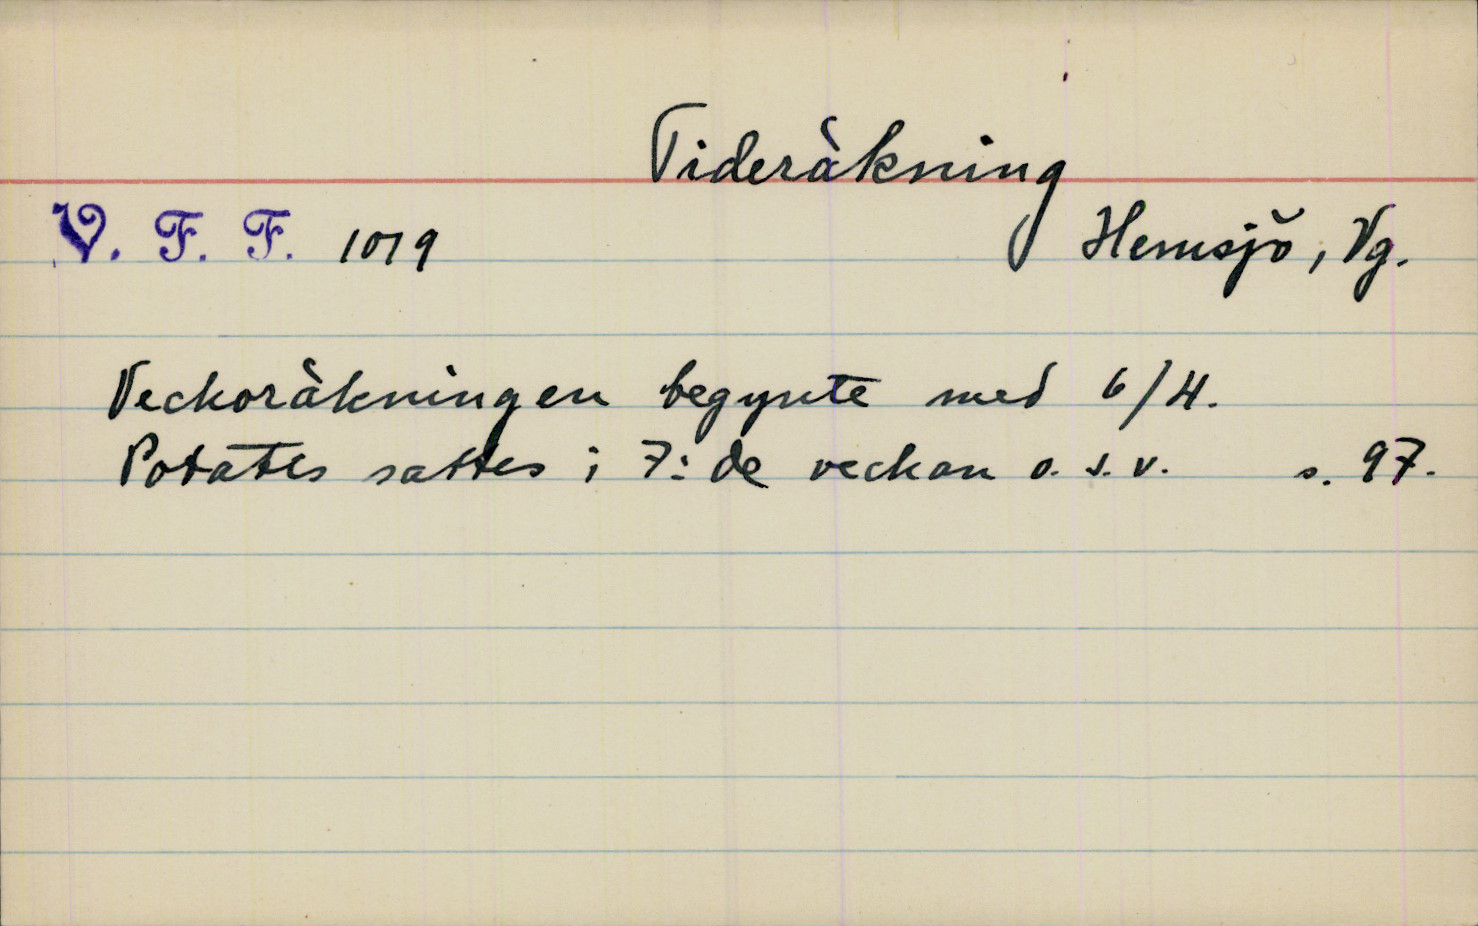 Tideräkning
V. F. F. 1019
Hemsjö, Vg.
Veckoräkningen begynte med 6/4.
Potatis sattes i 7:de veckan o.s.v. s. 97.